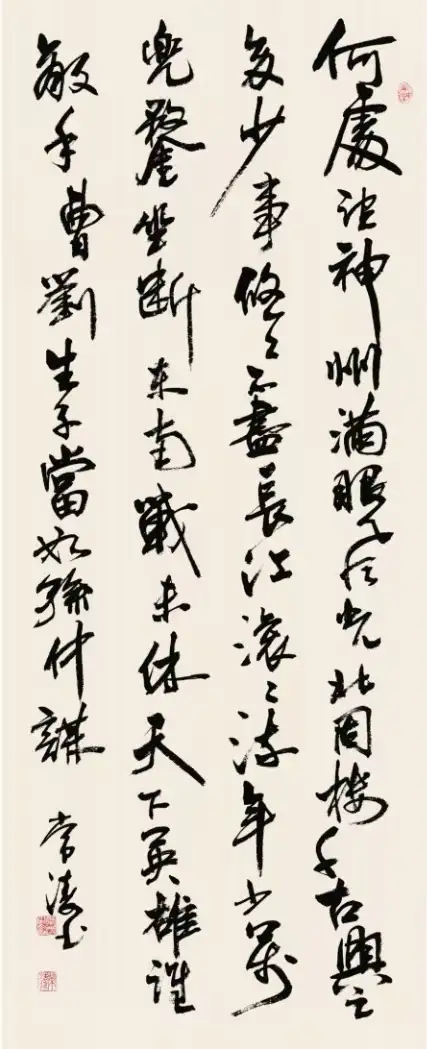 何處望神州滿眼風光北固樓千古興亡
多少事悠々不盡長江滾々流年少萬
兜鍪坐斷東南戰未休天下英雄誰
敵手曹劉生子當如孫仲謀
常 书